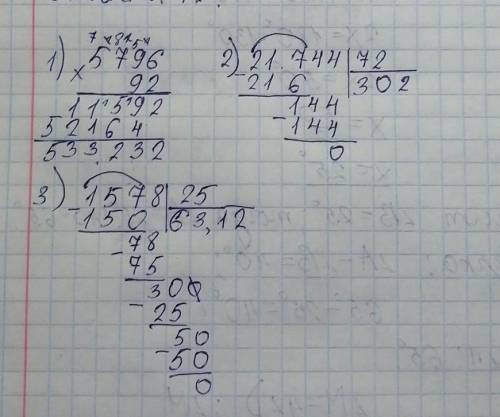 1) 5796
× 92
11592
52164
533232
2) 21744 | 72
- 216 | 302
144
- 144
0
3) - 1578 | 25
150 | 63,12
- 78
75
300
- 25
50
- 50
0